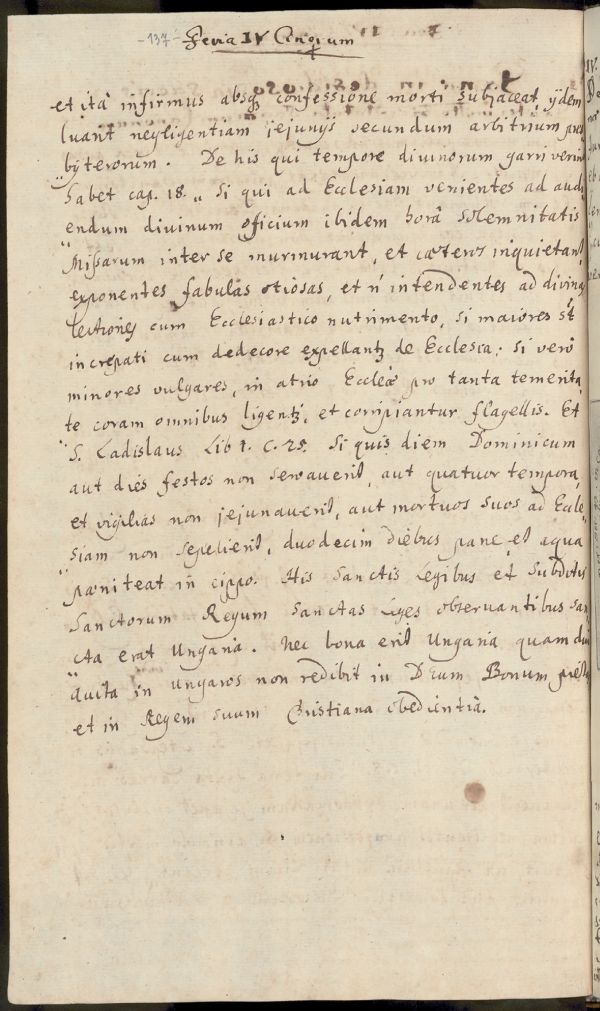 -137- Feria IV Cinerum
et ità infirmus absq; confessione morti subjaceat, ijdem
luant negligentiam jejunijs secundum arbitrium pres
byterorum. De his qui tempore divinorum garriverint
habet cap. 18. „ Si qui ad Ecclesiam venientes ad audi
endum divinum officium ibidem horâ solemnitatis
„ Missarum inter se murmurant, et cæteros inquietant,
exponentes fabulas otiosas, et ñ intendentes ad divinas
lectiones cum Ecclesiastico nutrimento, si maiores st̃
increpati cum dedecore expellantꝫ de Ecclesia: si verò
minores vulgares, in atrio Eccleæ pro tanta temerita
te coram omnibus ligentꝫ, et corripiantur flagellis. Et
„ S. Ladislaus Lib 1. C. 25. Si quis diem Dominicum
aut dies festos non servaverit, aut quatuor tempora,
et vigilias non jejunaverit, aut mortuos suos ad Eccle
siam non sepelierit, duodecim diebus pane et aqua
„ pæniteat in cippo. His Sanctis Legibus et Subditis
Sanctorum Regum Sanctas Leges observantibus San
cta erat Ungaria. Nec bona erit Ungaria quam diu
avita in Ungaros non redibit in Deum Bonum pietas
et in Regem suum Cristiana obedientiâ.